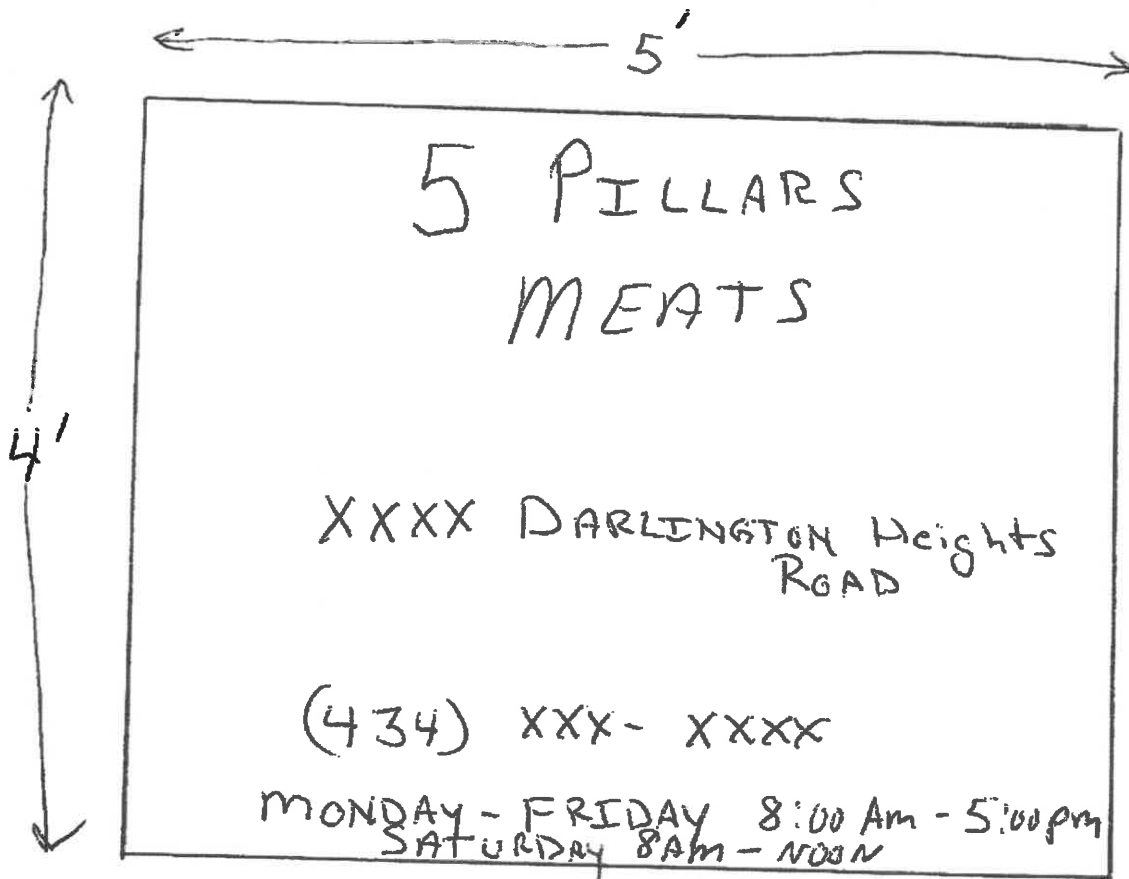 5'
4'
5 PILLARS
MEATS
XXXX DARLINGTON Heights
ROAD
(434) XXX- XXXX
MONDAY - FRIDAY 8:00 Am - 5:00pm
SATURDAY 8AM - NOON